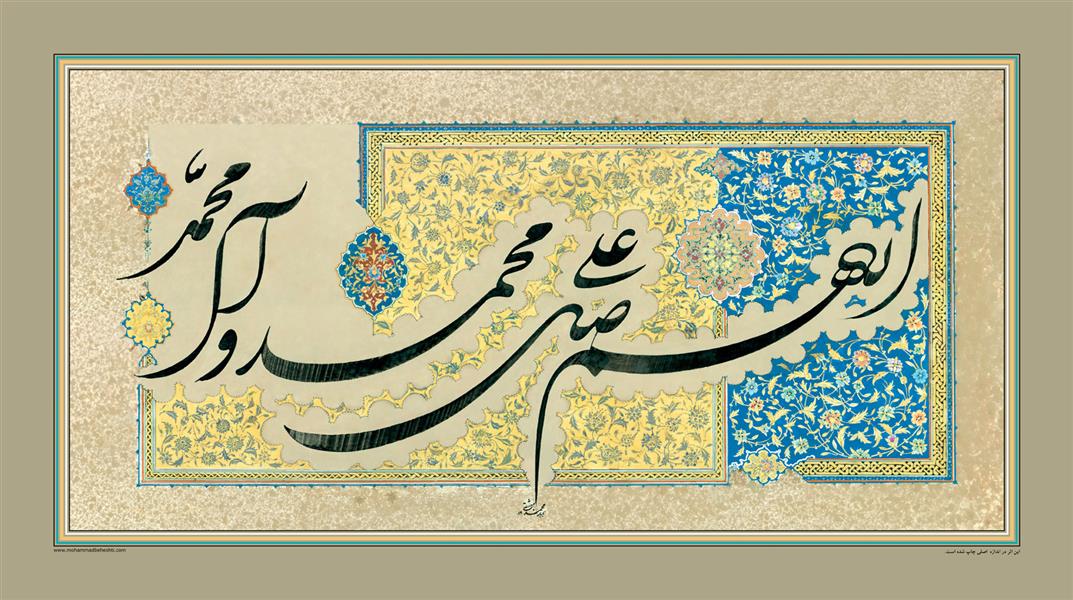 اللهم صلی علی محمد و آل محمّد
www.mohammadbeheshti.com
این اثر در اندازه اصلی چاپ شده است.